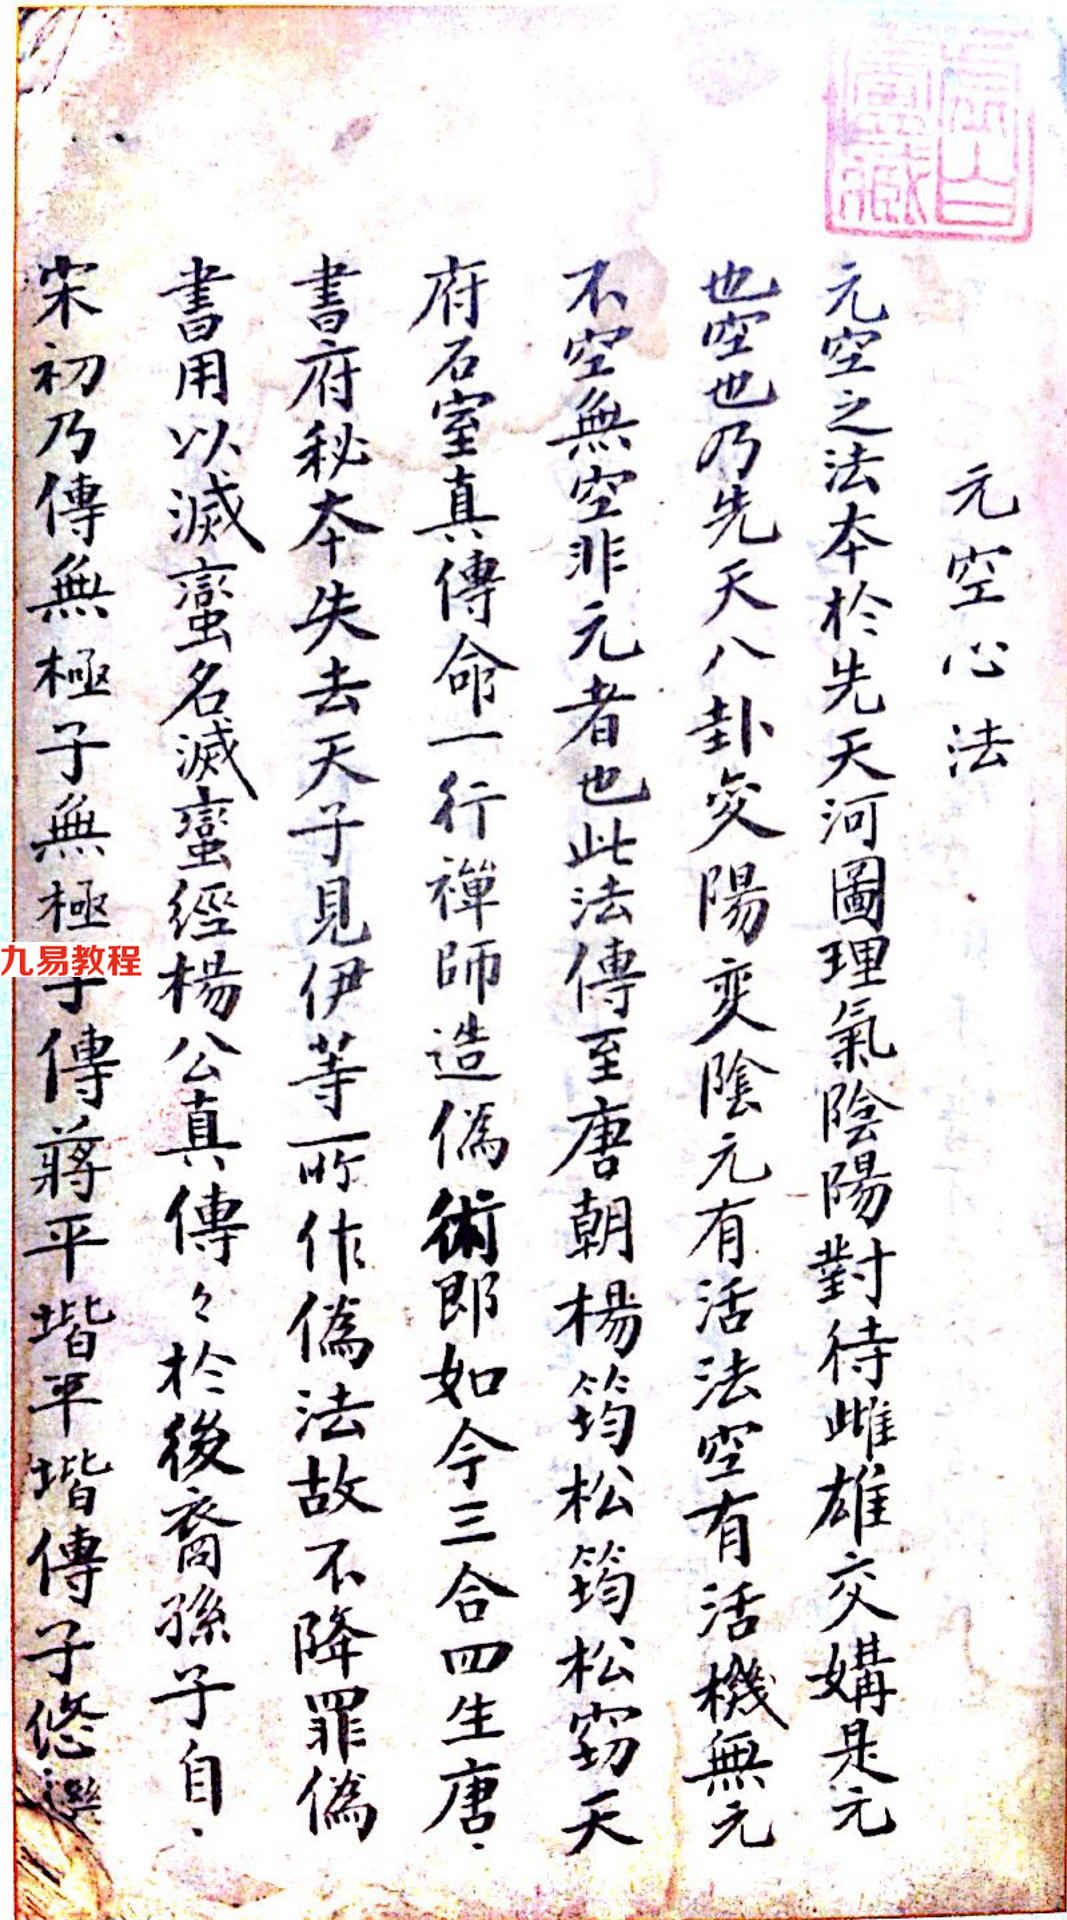 元空心法
元空之法本於先天河圖理氣陰陽對待雌雄交媾是元
也空也乃先天八卦交陽变陰元有活法空有活機無元
不空無空非元者也此法傳至唐朝楊筠松筠松窃天
府石室真傳命一行禪師造偽術即如今三合四生唐
書府秘本失去天子見伊等所作偽法故不降罪偽
書用以滅蛮名滅蛮經楊公真傳々於後裔孫子自
宋初乃傳無極子無極子傳蔣平堦平堦傳子悠
九易教程